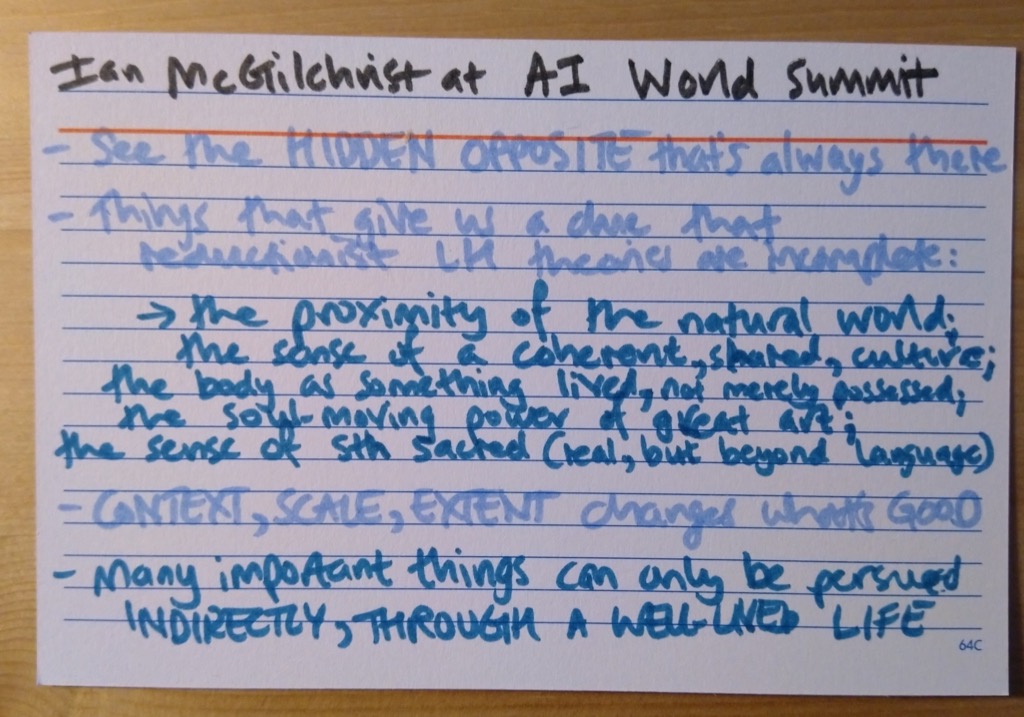 Ian McGilchrist at AI World Summit
- See the HIDDEN OPPOSITE that's always there
- Things that give us a clue that
reductionist LH theories are incomplete:
→ the proximity of the natural world;
the sense of a coherent, shared, culture;
the body as something lived, not merely possessed;
the soul-moving power of great art;
the sense of sth sacred (real, but beyond language)
- CONTEXT, SCALE, EXTENT changes what's GOOD
- Many important things can only be persued
INDIRECTLY, THROUGH A WELL-LIVED LIFE
64C